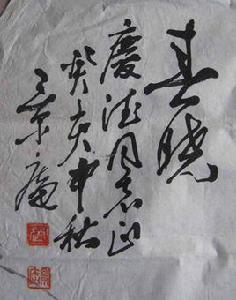 春晓
慶德同志正
癸亥中秋
京庵